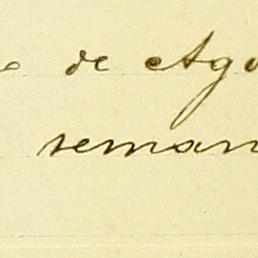 de Ago
seman